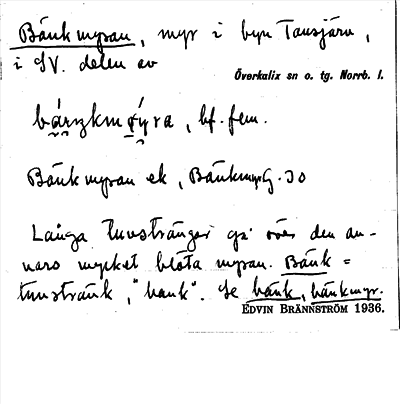 Bänkmyran, myr i byn Tansjärn,
i SV. delen av
Överkalix sn o. tg. Norrb. l.
bf. fem.
Bänkmyran ek, Bänkmyr G. 30
Långa tuvsträngar gå över den an-
nars mycket blöta myran. Bänk =
tuvstränk, "bank". Se bänk, bänkmyr.
EDVIN BRÄNNSTRÖM 1936.